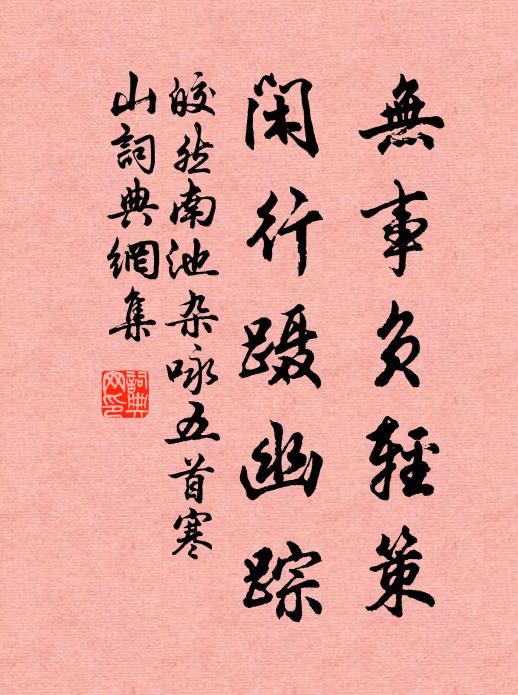 無事負輕策
闲行蹑幽踪
皎然南池杂咏五首寒
山詞典網集
詞典网印